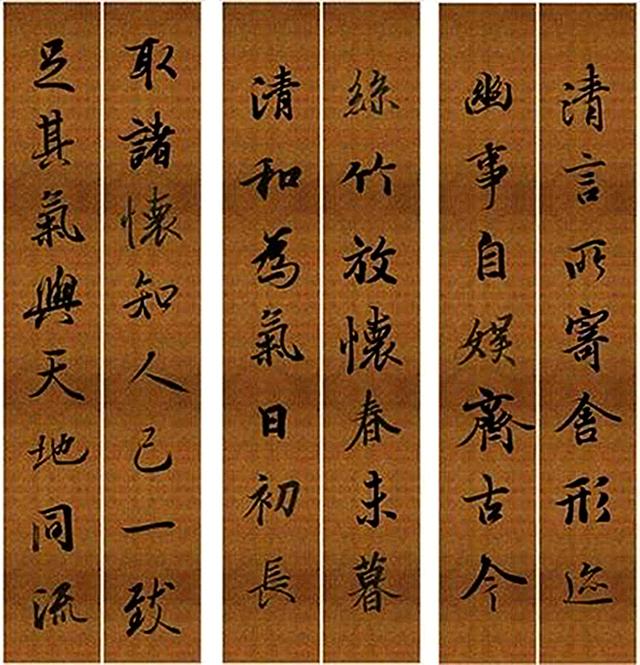 清言所寄舍形迹
幽事自娱齋古今
絲竹放懷春未暮
清和為氣日初長
取諸懷知人己一致
足其氣與天地同流